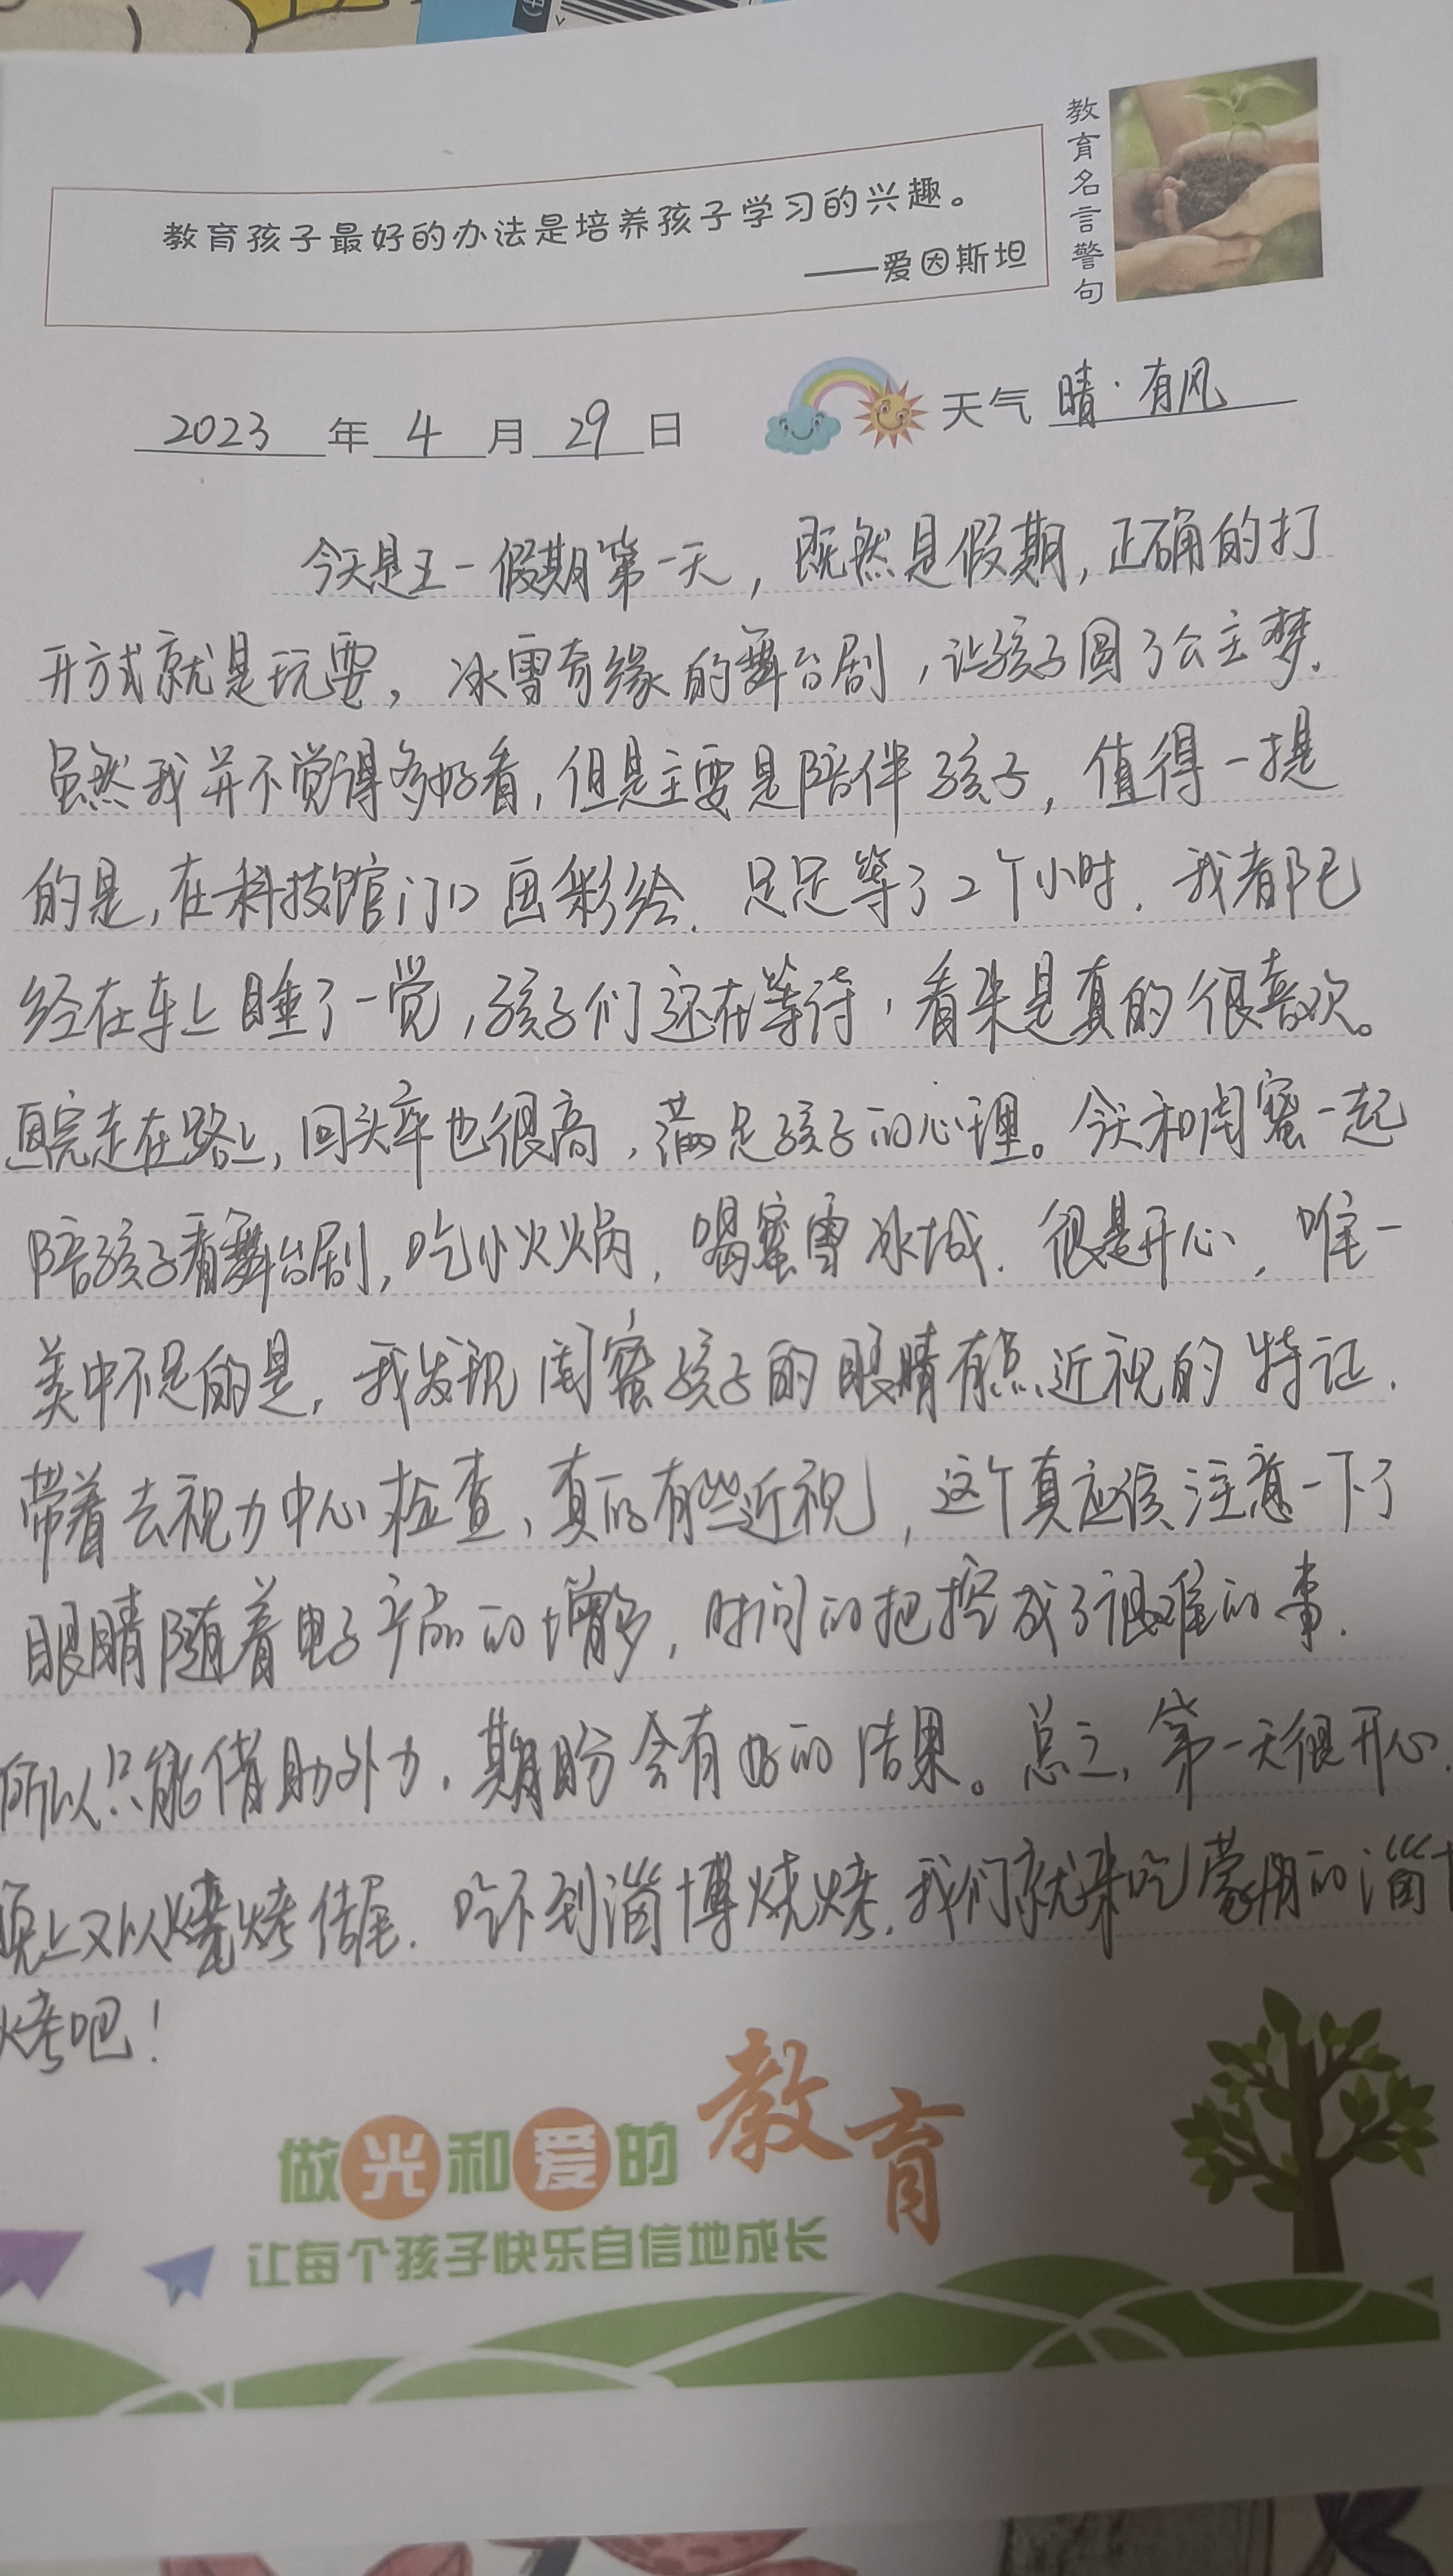 教育名言警句
教育孩子最好的办法是培养孩子学习的兴趣。
——爱因斯坦
2023年4月29日 天气 晴·有风
今天是五一假期第一天，既然是假期，正确的打
开方式就是玩耍，冰雪奇缘的舞台剧，让孩子圆了公主梦.
虽然我并不觉得多好看，但是主要是陪伴孩子，值得一提
的是，在科技馆门口画彩绘.足足等了2个小时.我都已
经在车上睡了一觉，孩子们还在等待，看来是真的很喜欢。
画完走在路上，回头率也很高，满足孩子的心理。今天和闺蜜一起
陪孩子看舞台剧，吃小火锅，喝蜜雪冰城.很是开心，唯一
美中不足的是，我发现闺蜜孩子的眼睛有点近视的特征.
带着去视力中心检查、真的有些近视，这个真应该注意一下了
眼睛随着电子产品的增多，时间的把控成了很难的事.
所以只能借助外力.期盼会有好的结果。总之，第一天很开心.
晚上又以烧烤结尾.吃不到淄博烧烤.我们就来吃蒙阴的淄
烤吧！
做光和爱的教育
让每个孩子快乐自信地成长